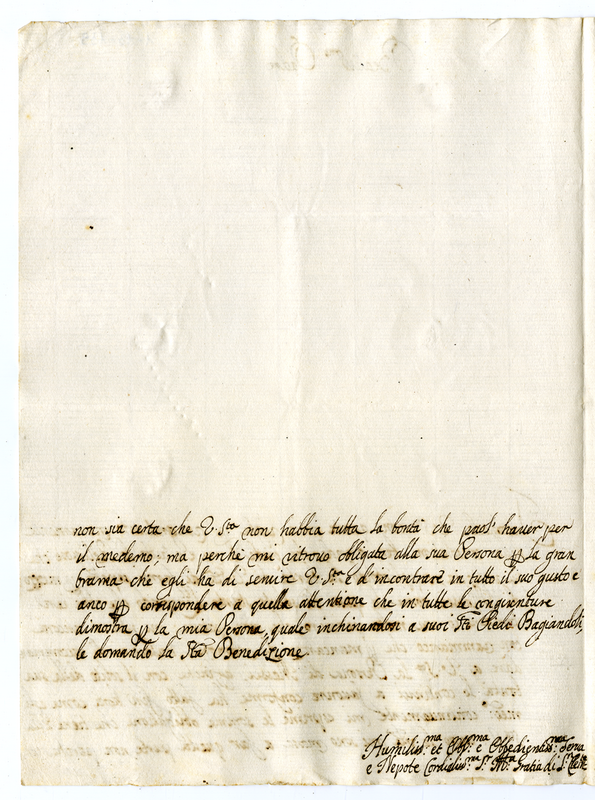 non sia certa che V. S.ta non habbia tutta la bontà che puol' hauer per
il medemo, ma perche mi ritrouo obligata alla sua Persona p la gran
brama che egli ha di seruire V. S.ta e d'incontrare in tutto il suo gusto e
anco p corrispondere a quella attentione che in tutte le congiunture
dimostra p la mia Persona, quale inchinandosi a suoi S.ti Piedi Bagiandoli,
le domando la S.ta Benedizione.
Humiliss.ma et Obl.ma e Obbedientiss.ma Serua
e Nepote Cordialiss.ma S.r M.a Gratia di S.